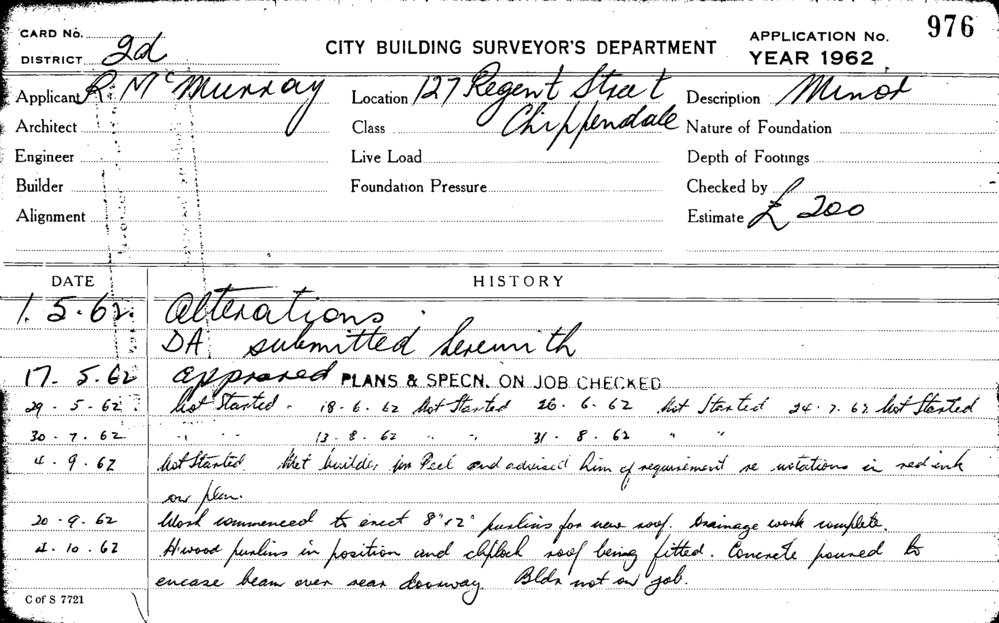 CARD No.
DISTRICT 2d
CITY BUILDING SURVEYOR'S DEPARTMENT
APPLICATION No. 976
YEAR 1962
Applicant R. McMurray
Location 127 Regent Street
Description Minor
Architect
Class Chippendale
Nature of Foundation
Engineer
Live Load
Depth of Footings
Builder
Foundation Pressure
Checked by
Alignment
Estimate £ 200
DATE HISTORY
1. 5. 62. Alterations.
DA submitted herewith
17. 5. 62 approved PLANS & SPECN. ON JOB CHECKED
29 - 5 - 62. Not Started - 18 - 6. 62 Not Started 26 - 6. 62 Not Started 24 - 7. 62 Not Started
30 - 7. 62 " " 13 - 8. 62 " " 31 - 8. 62 " "
4. 9. 62 Not Started. Met builder Peel and advised him of requirement re notations in red ink
on plan.
20 - 9. 62 Work commenced to erect 8" x 2" purlins for new roof. Drainage work complete.
4. 10. 62 H'wood purlins in position and cliplock roof being fitted. Concrete poured to
encase beam over rear doorway. Bldr not on job.
C of S 7721